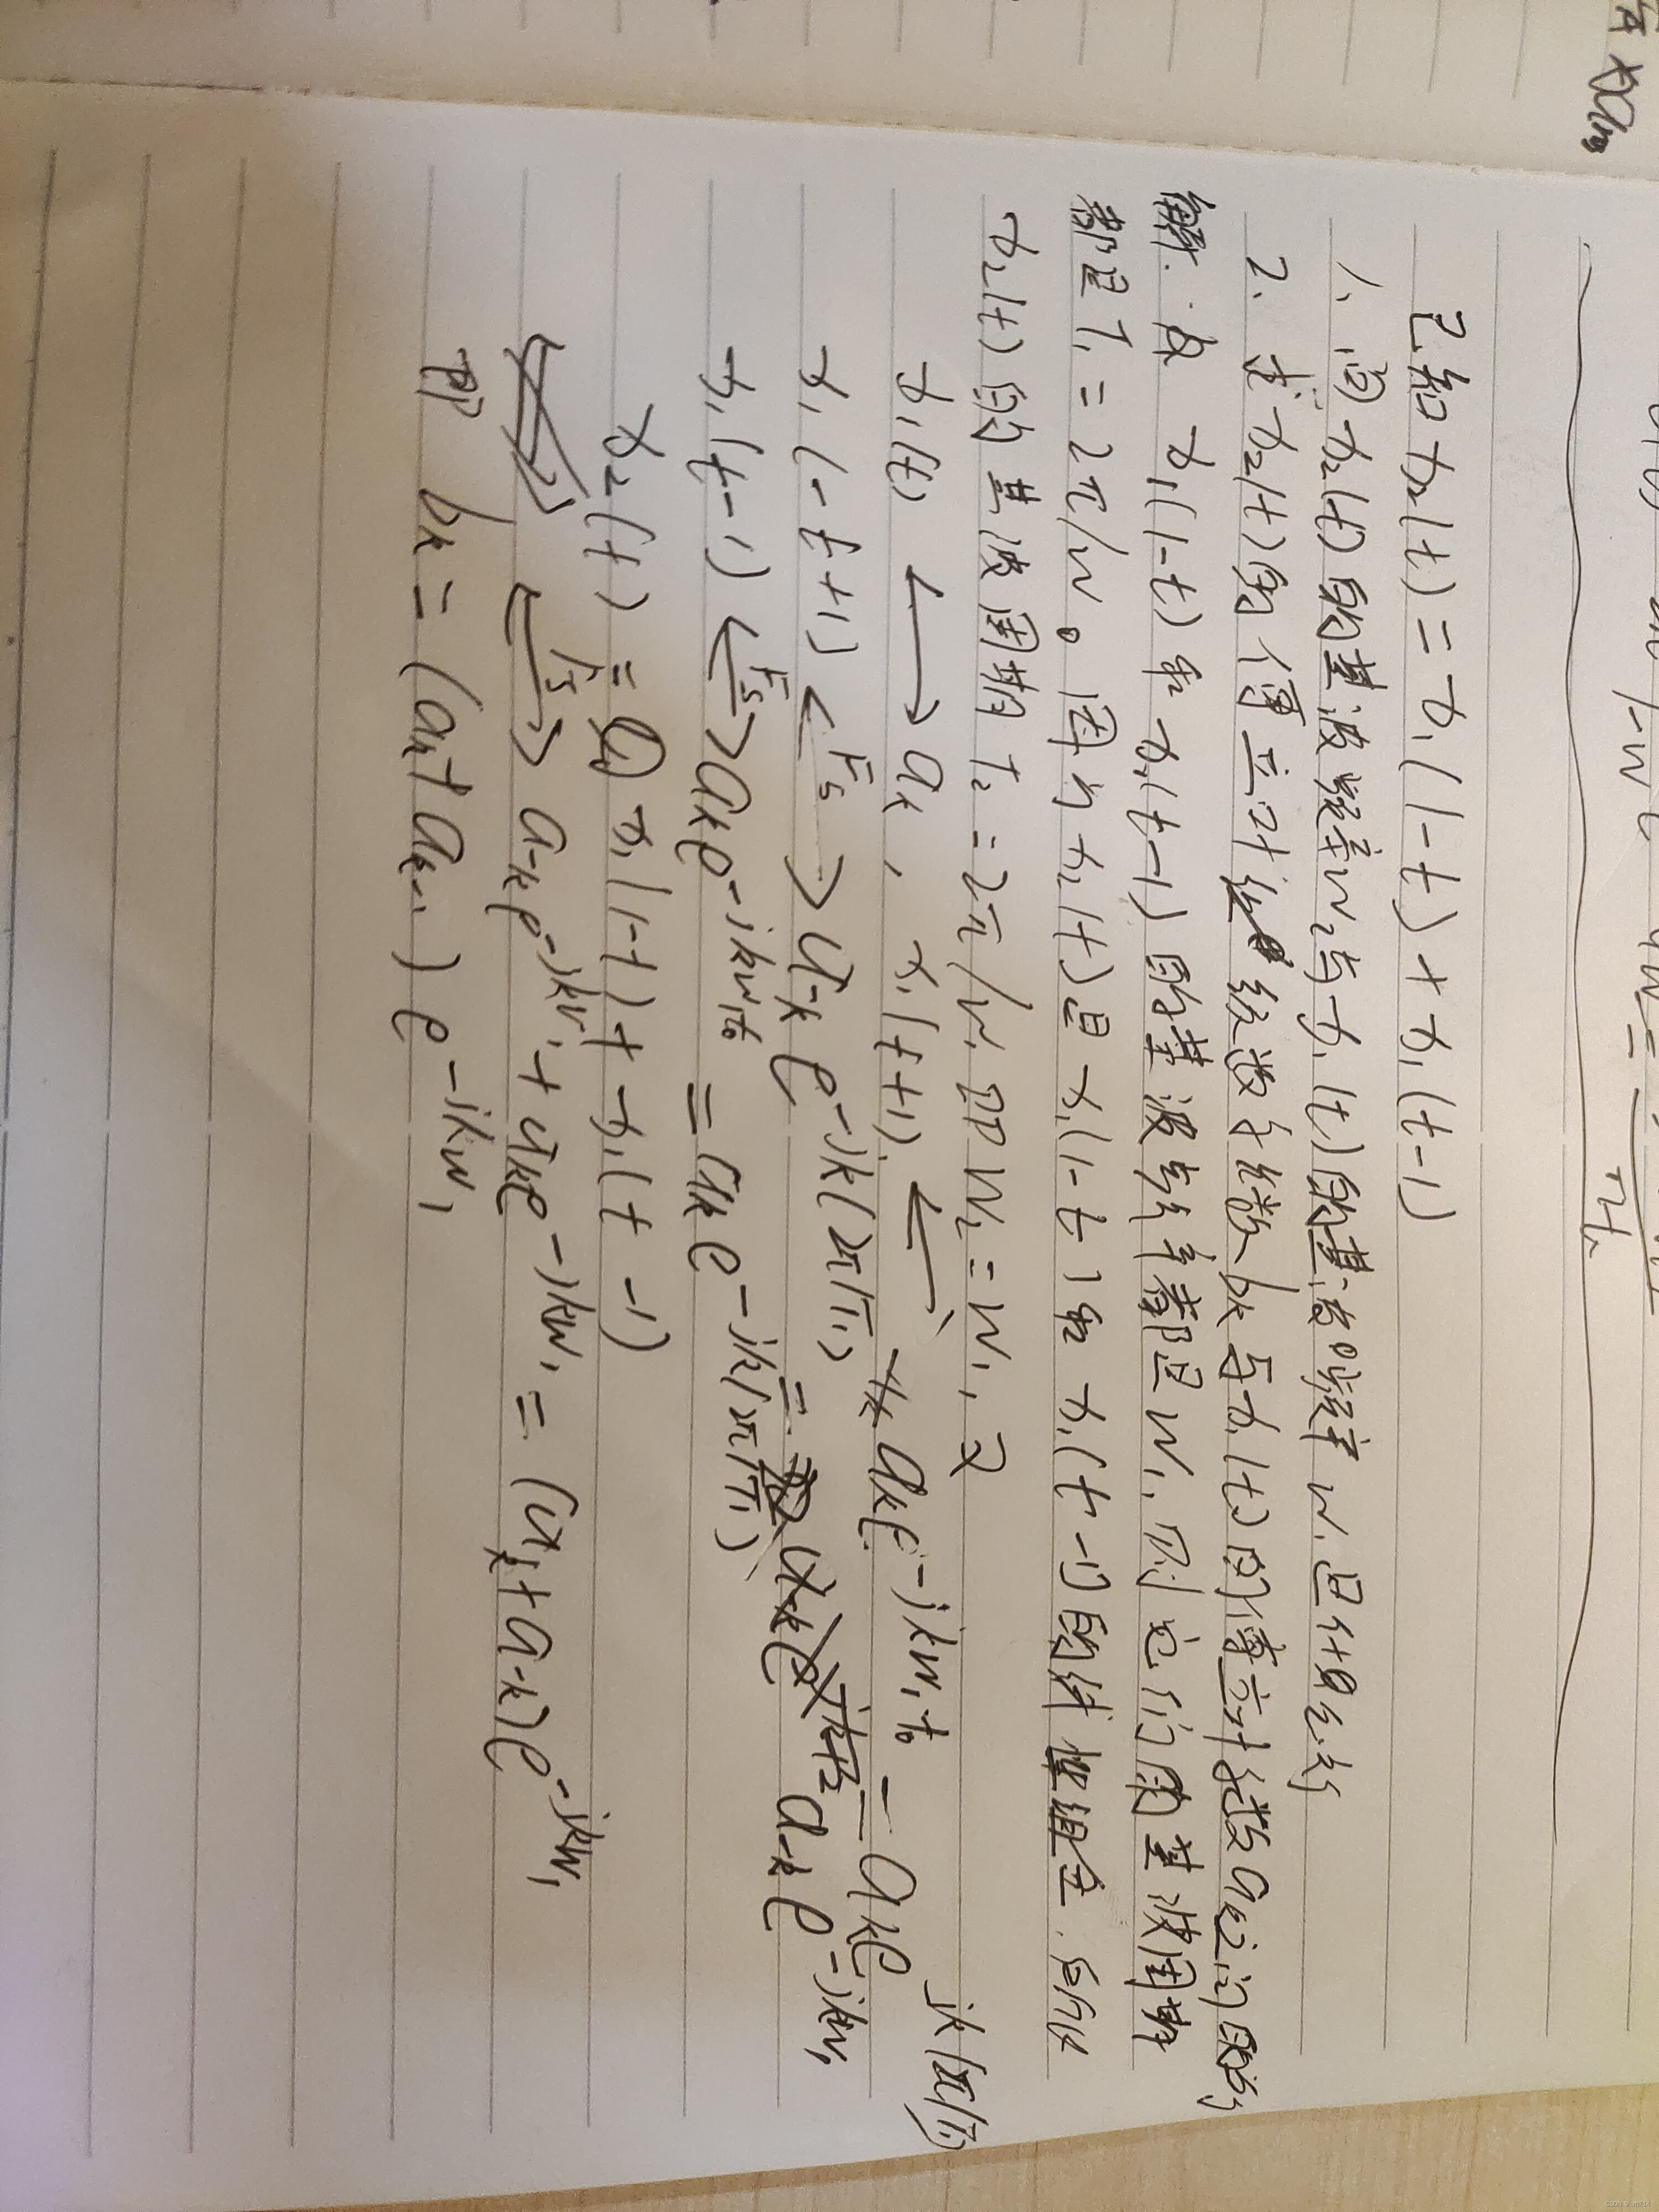 已知 x₂(t) = x₁(1-t) + x₁(t-1)
1、问 x₂(t) 的基波频率 w₂ 与 x₁(t) 的基波频率 w₁ 是什么关系
2、求 x₂(t) 的傅立叶级数系数 bₖ 与 x₁(t) 的傅立叶级数 aₖ 之间的关系
解: x₁(1-t) 和 x₁(t-1) 的基波频率都是 w₁, 则它们的基波周期
都是 T₁ = 2π/w。因为 x₂(t) 是 x₁(1-t) 和 x₁(t-1) 的线性组合, 所以
x₂(t) 的基波周期 T₂ = 2π/w₁ 即 w₂ = w₁, 又
jk(2π/T₁)
x₁(t) ⟷ aₖ, x₁(t+1) ⟷ aₖe^-jkw₁t₀ = aₖe
x₁(-t+1) <FS> a-ₖ e^-jk(2π/T₁) = a-ₖ e^-jkw₁
x₁(t-1) <FS> aₖe^-jkw₁t₀ = aₖ e^-jk(2π/T₁)
x₂(t) = x₁(1-t) + x₁(t-1)
<FS> a-ₖe^-jkw₁ + aₖe^-jkw₁ = (aₖ + a-ₖ) e^-jkw₁
即 bₖ = (aₖ + a-ₖ) e^-jkw₁